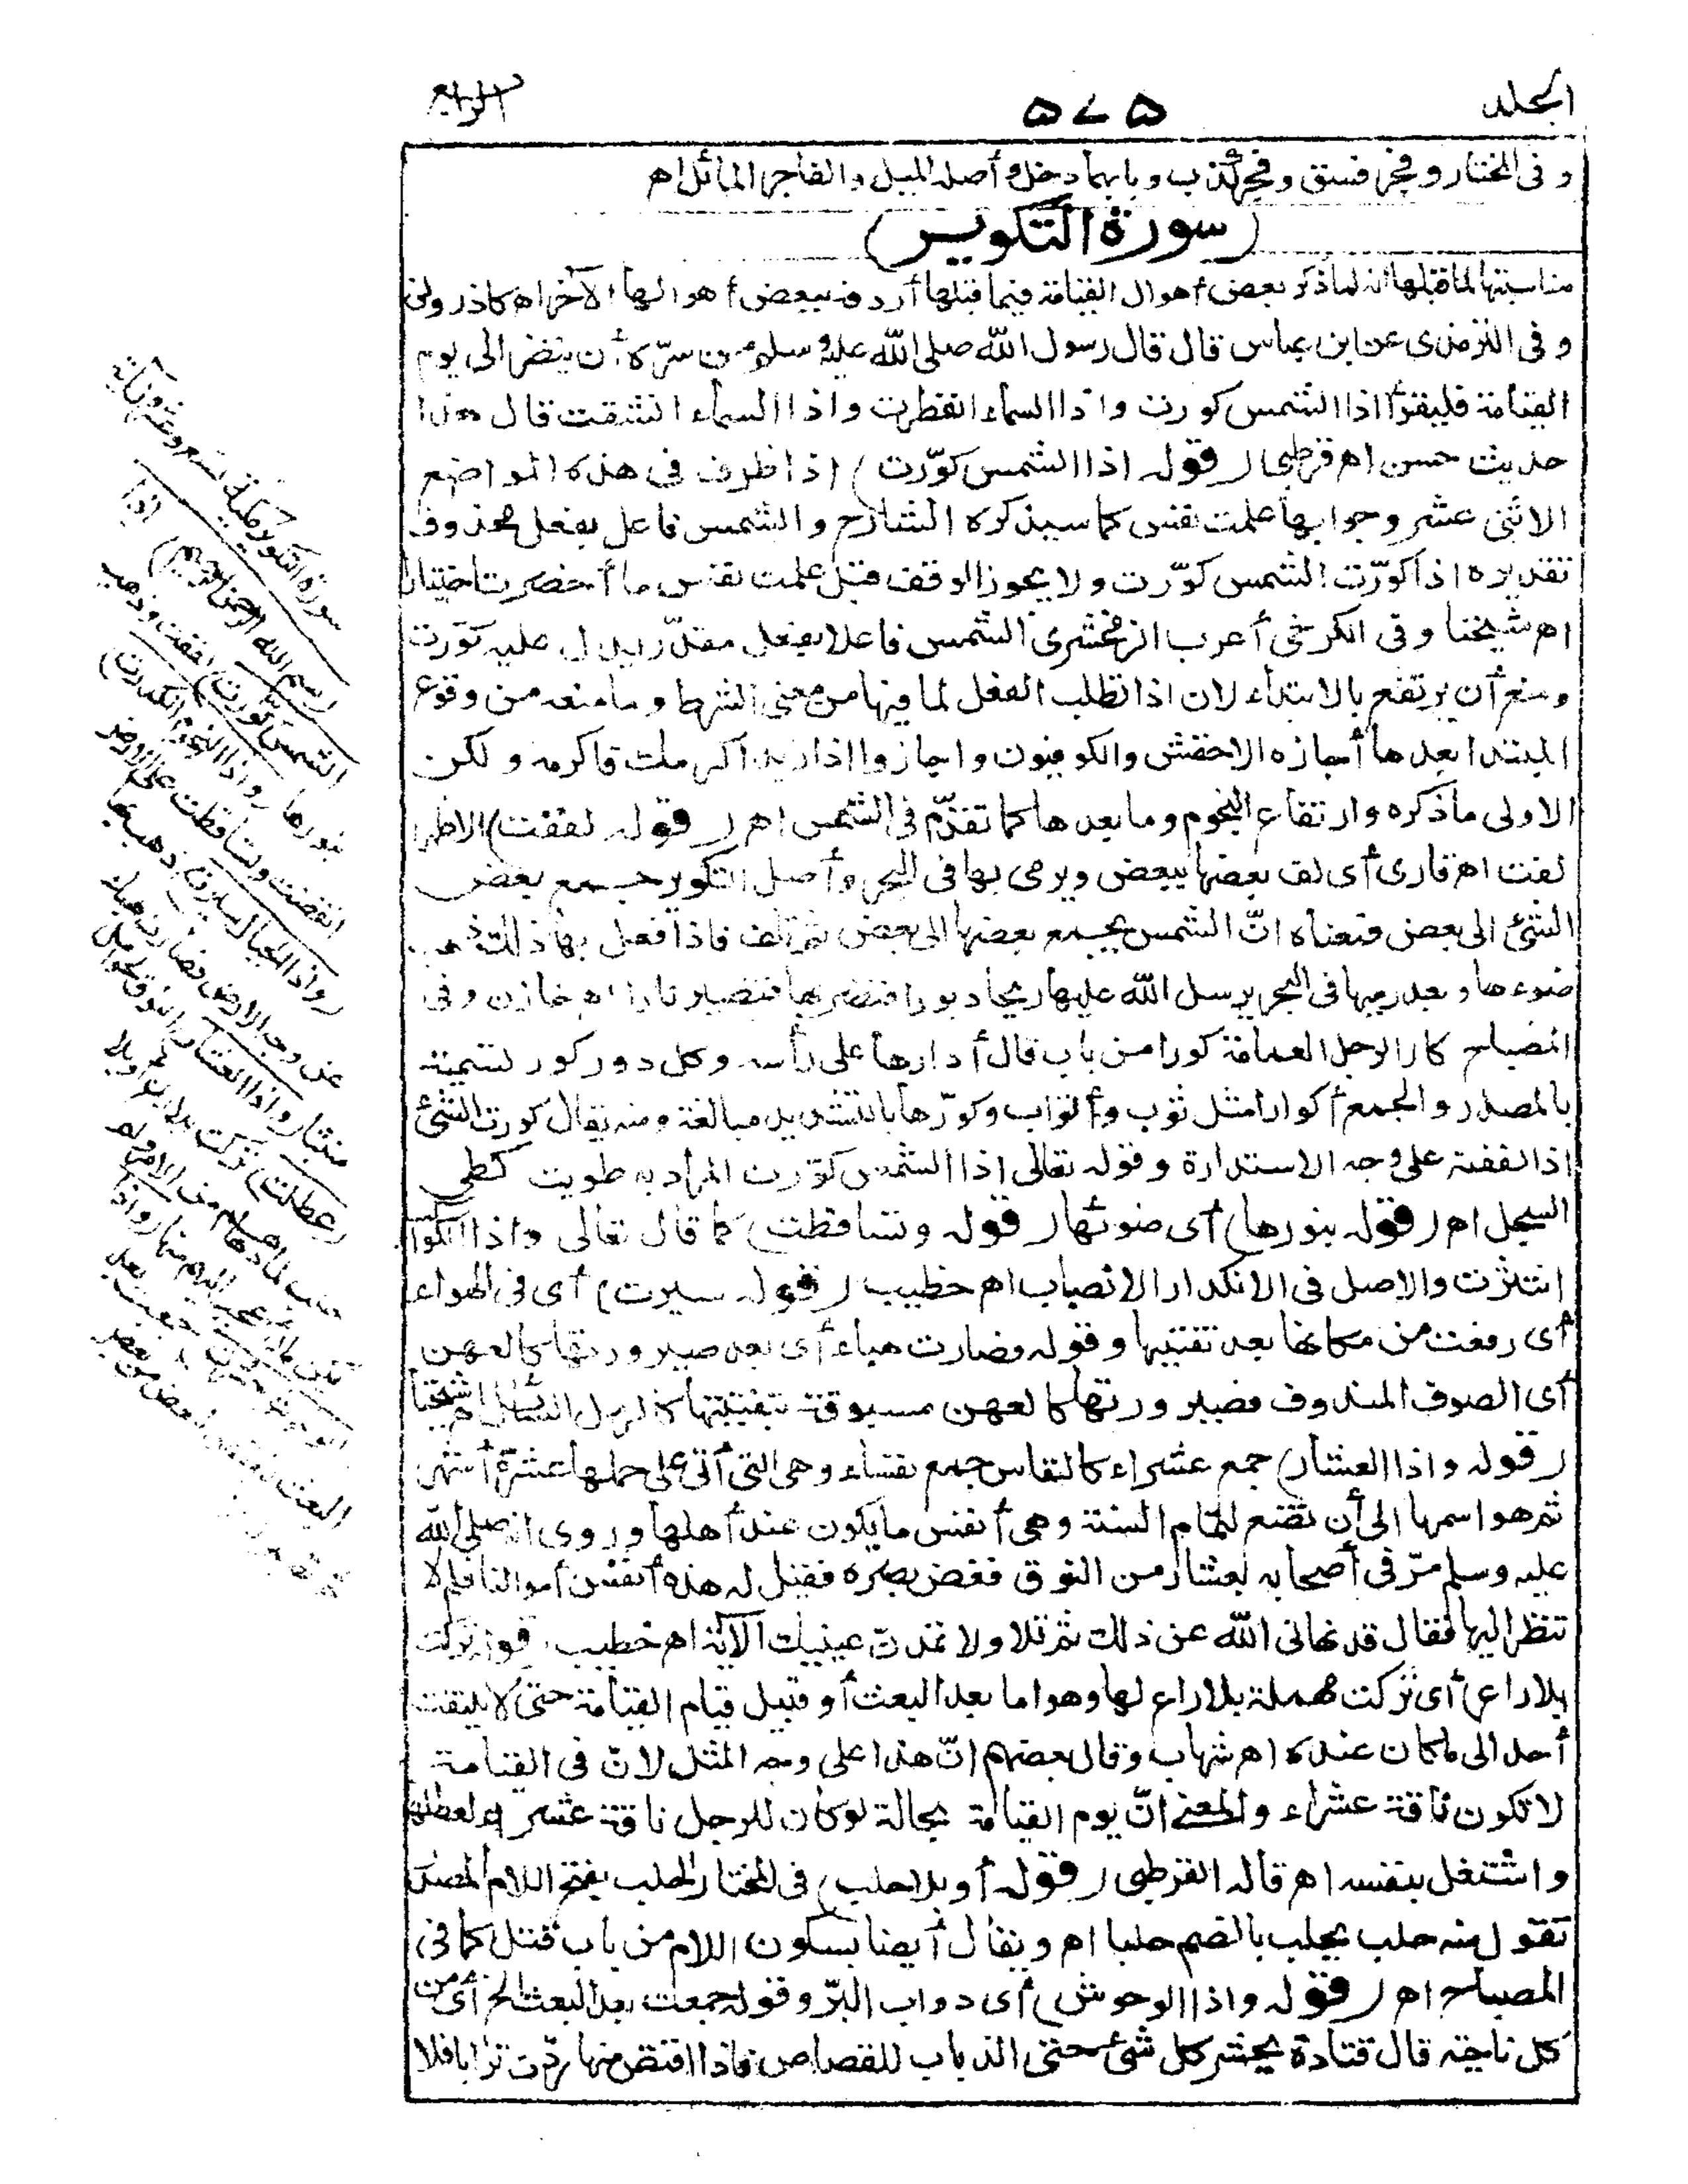 الجلد
٥٧٥
الرابع
وفى المختار وفجر فسق وفجر كذب وبابهما دخل وأصله الميل والفاجر المائل اه
(سورة التكوير)
مناسبتها لما قبلها أنه لما ذكر بعض أهوال القيامة فيما قبلها أردفه ببعض أهوالها الآخر اه كازرونى
وفى الترمذى عن ابن عباس قال قال رسول الله صلى الله عليه وسلم من سرّه أن ينظر الى يوم
القيامة فليقرأ اذا الشمس كورت واذا السماء انفطرت واذا السماء انشقت قال هذا
حديث حسن اه قرطبى (قوله اذا الشمس كوّرت) اذا ظرف فى هذه المواضع
الاثنى عشر وجوابها علمت نفس كما سيذكره الشارح والشمس فاعل بفعل محذوف
تقديره اذا كوّرت الشمس كوّرت ولا يجوز الوقف قبل علمت نفس ما أحضرت اختيارا
اه شيخنا وفى الكرخى أعرب الزمخشرى الشمس فاعلا بفعل مقدّر يدل عليه كوّرت
ومنع أن يرتفع بالابتداء لان اذا تطلب الفعل لما فيها من معنى الشرط وما منعه من وقوع
المبتدا بعدها أجازه الاخفش والكوفيون واجازوا اذا زيد اكرمك فاكرمه ولكن
الاولى ما ذكره وارتفاع النجوم وما بعدها كما تقدّم فى الشمس اه (قوله لففت) الاظهر
لفت اه قارى أى لف بعضها ببعض ويرمى بها فى البحر وأصل التكوير جمع بعض
الشئ الى بعض فمعناه انّ الشمس يجمع بعضها الى بعض ثم تلف فاذا فعل بها ذلك ذهب
ضوءها وبعد رميها فى البحر يرسل الله عليها ريحا دبورا فتضربها فتصير نارا اه خازن وفى
المصباح كار الرجل العمامة كورا من باب قال أدارها على رأسه وكل دور كور تسمية
بالمصدر والجمع أكوار مثل ثوب وأثواب وكوّرها بالتشديد مبالغة ومنه يقال كورت الشئ
اذا لففته على وجه الاستدارة وقوله تعالى اذا الشمس كوّرت المراد به طويت كطى
السجل اه (قوله بنورها) أى ضوئها (قوله وتساقطت) كما قال تعالى واذا الكواكب
انتثرت والاصل فى الانكدار الانصباب اه خطيب (قوله سيرت) أى فى الهواء
أى رفعت من مكانها بعد تفتيتها وقوله فصارت هباء أى بعد صيرورتها كالعهن
أى الصوف المندوف فصيرورتها كالعهن مسبوقة بتفتيتها كالرمل السائل اه شيخنا
(قوله واذا العشار) جمع عشراء كالنفاس جمع نفساء وهى التى أتى على حملها عشرة أشهر
ثم هو اسمها الى أن تضع لتمام السنة وهى أنفس ما يكون عند أهلها وروى انه صلى الله
عليه وسلم مرّ فى أصحابه بعشار من النوق فغض بصره فقيل له هذه أنفس أموالنا فلم لا
تنظر اليها فقال قد نهانى الله عن ذلك ثم تلا ولا تمدّنّ عينيك الآية اه خطيب (قوله تركت
بلا راع) أى تركت مهملة بلا راع لها وهو اما بعد البعث أو قبيل قيام القيامة حتى لا يلتفت
أحد الى ما كان عنده اه شهاب وقال بعضهم انّ هذا على وجه المثل لانّ فى القيامة
لا تكون ناقة عشراء والمعنى انّ يوم القيامة بحالة لو كان للرجل ناقة عشراء لعطلها
واشتغل بنفسه اه قاله القرطبى (قوله أو بلا حلب) فى المختار الحلب بفتح اللام المصدر
تقول منه حلب يحلب بالضم حلبا اه ويقال أيضا بسكون اللام من باب قتل كما فى
المصباح اه (قوله واذا الوحوش) أى دواب البرّ وقوله جمعت بعد البعث الخ أى من
كل ناحية قال قتادة يحشر كل شئ حتى الذباب للقصاص فاذا اقتص منها ردّت ترابا فلا
سورة التكوير مكية تسع وعشرون آية
(بسم الله الرحمن الرحيم) (اذا
الشمس كوّرت) لففت وذهب
بنورها (واذا النجوم انكدرت)
انقضت وتساقطت على الارض
(واذا الجبال سيرت) ذهب بها
عن وجه الارض فصارت هباء
منبثا (واذا العشار) النوق الحوامل
(عطلت) تركت بلا راع أو بلا